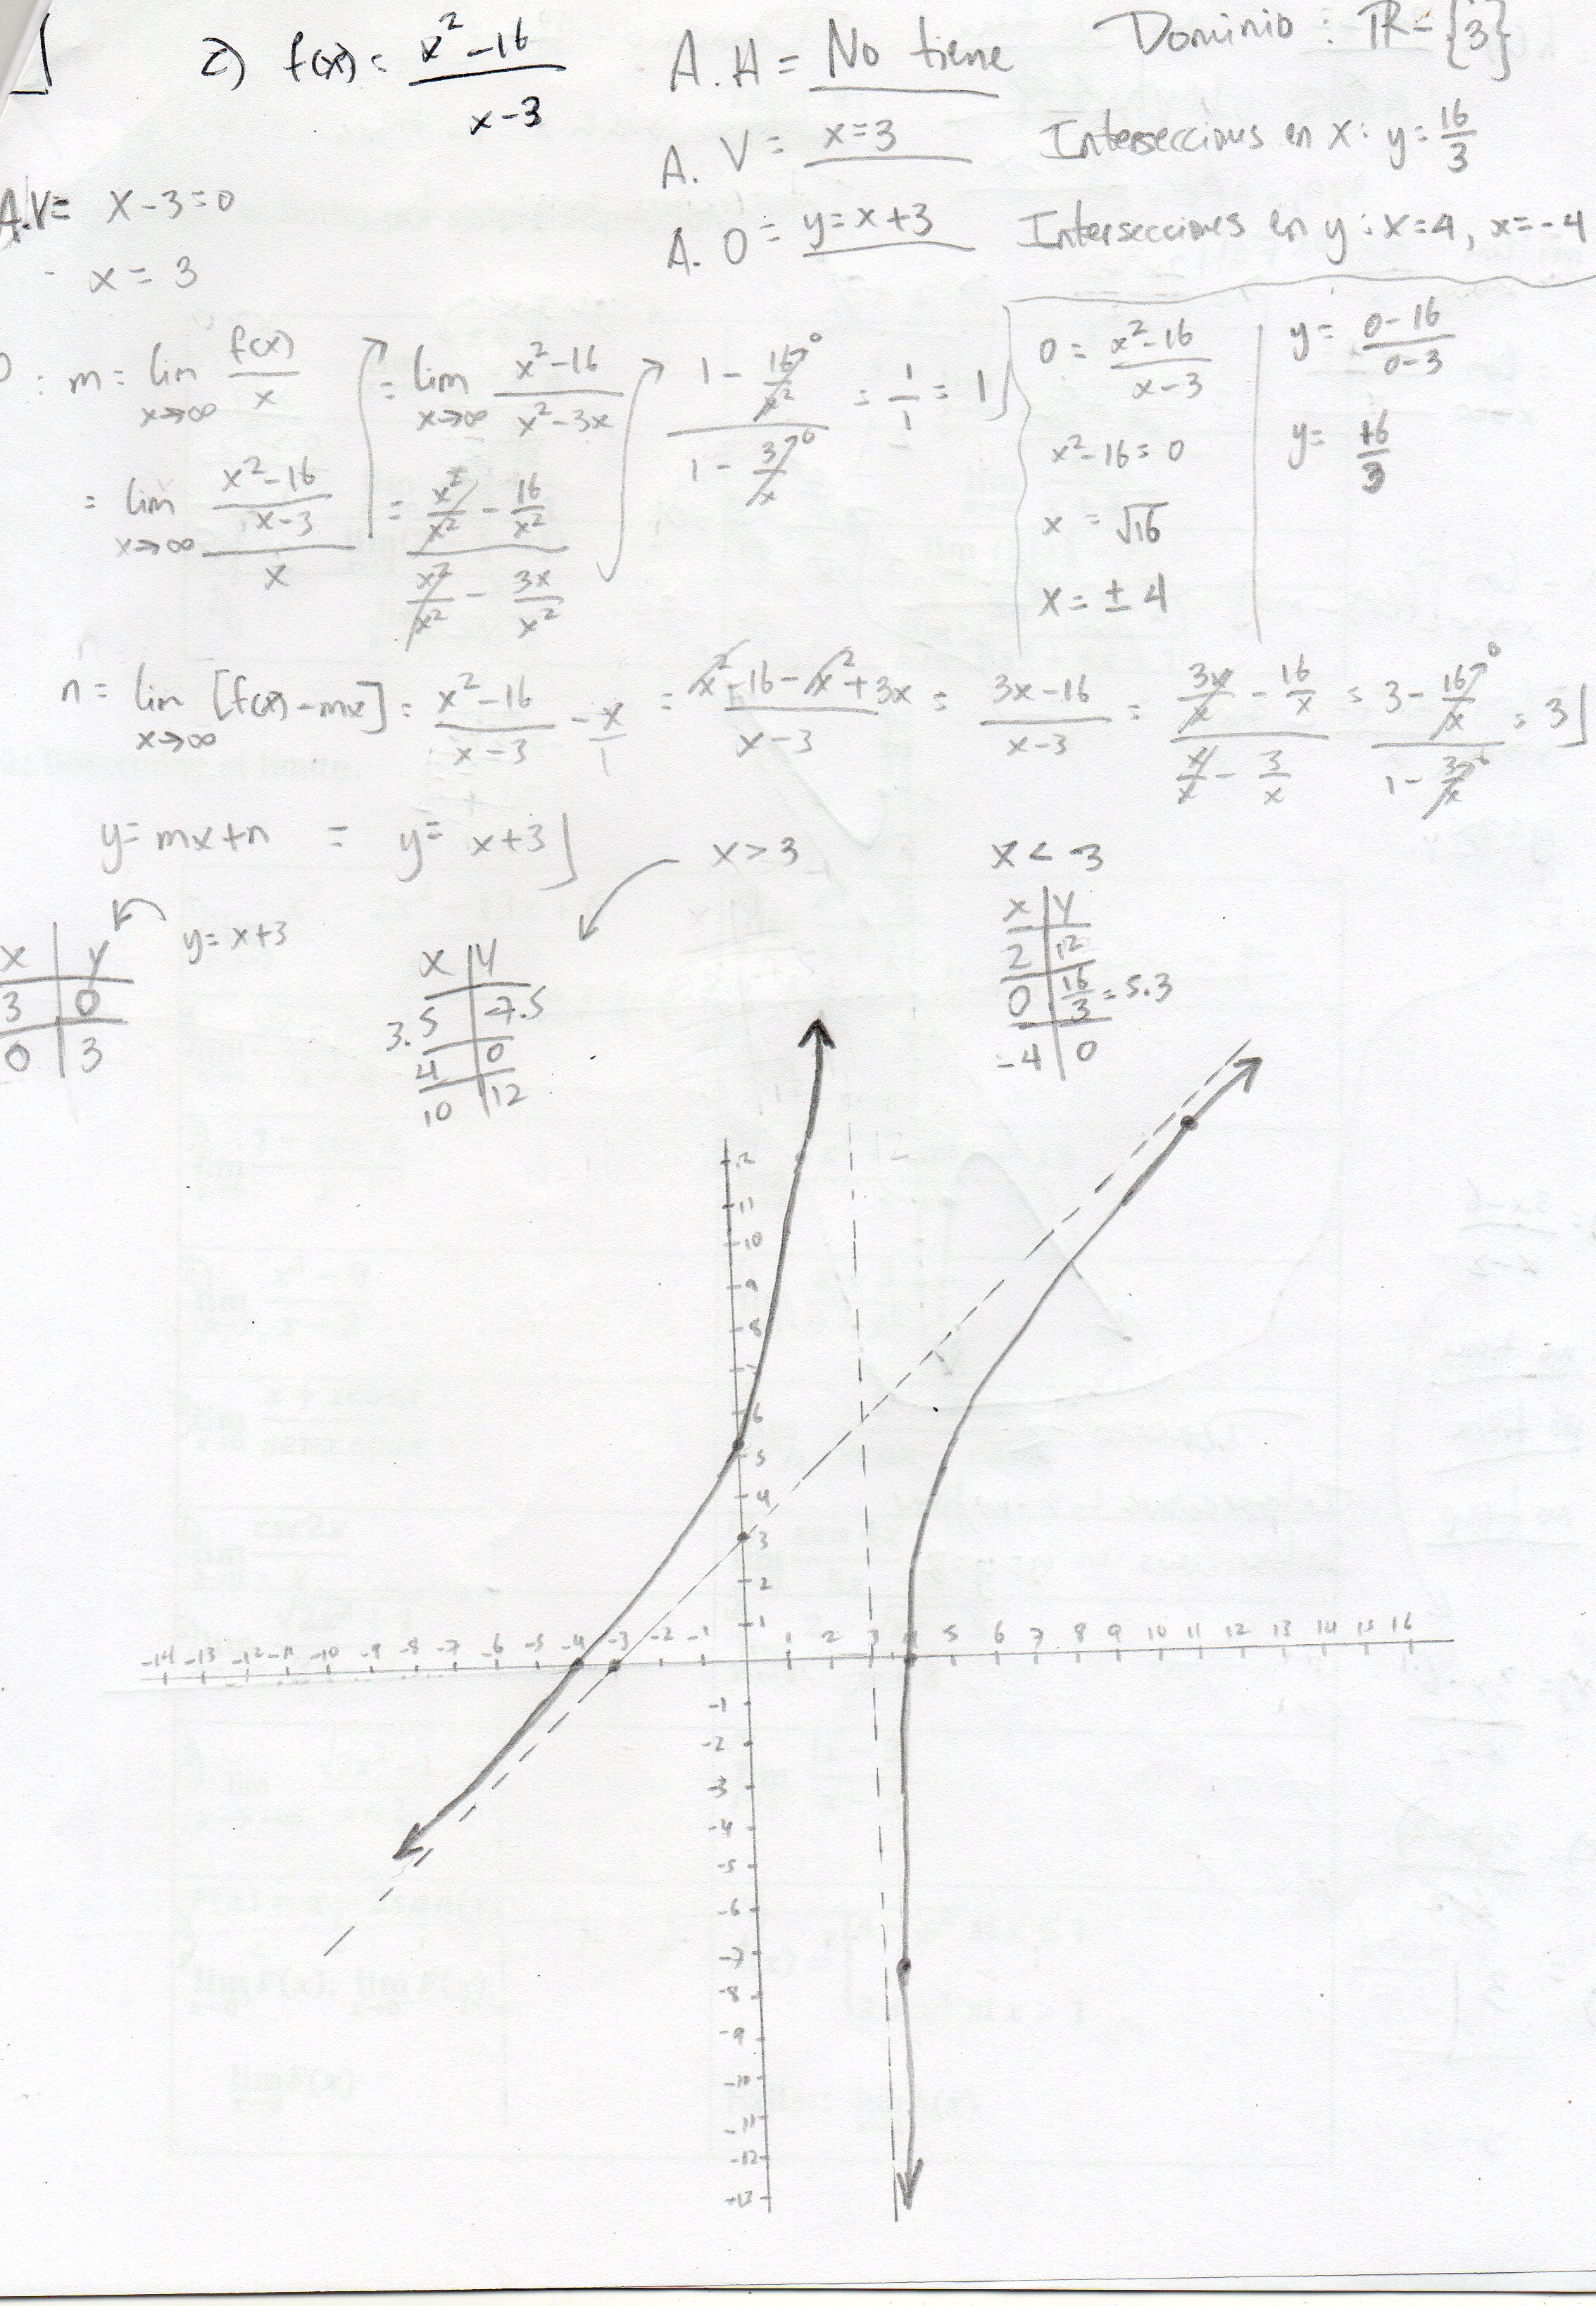 c) f(x) = (x² - 16)/(x - 3)
A.H = No tiene
Dominio : R - {3}
A.V = x = 3
Intersecciones en x: y = 16/3
A.O = y = x + 3
Intersecciones en y : x = 4, x = -4
A.V = x - 3 = 0
x = 3
: m = lim x→∞ f(x)/x
= lim x→∞ ((x² - 16)/(x - 3))/x
= lim x→∞ (x² - 16)/(x² - 3x)
= (x²/x² - 16/x²)/(x²/x² - 3x/x²)
(1 - 16/x² → 0)/(1 - 3/x → 0) = 1/1 = 1
0 = (x² - 16)/(x - 3)
x² - 16 = 0
x = √16
x = ± 4
y = (0 - 16)/(0 - 3)
y = 16/3
n = lim x→∞ [f(x) - mx] = (x² - 16)/(x - 3) - x/1 = (x² - 16 - x² + 3x)/(x - 3) = (3x - 16)/(x - 3) = (3x/x - 16/x)/(x/x - 3/x) = (3 - 16/x → 0)/(1 - 3/x → 0) = 3
y = mx + n = y = x + 3
y = x + 3
x | y
3 | 0
0 | 3
x > 3
x | y
3.5 | -7.5
4 | 0
10 | 12
x < 3
x | y
2 | 12
0 | 16/3 = 5.3
-4 | 0
12
11
10
9
8
7
6
5
4
3
2
1
-14 -13 -12 -11 -10 -9 -8 -7 -6 -5 -4 -3 -2 -1 1 2 3 4 5 6 7 8 9 10 11 12 13 14 15 16
-1
-2
-3
-4
-5
-6
-7
-8
-9
-10
-11
-12
-13